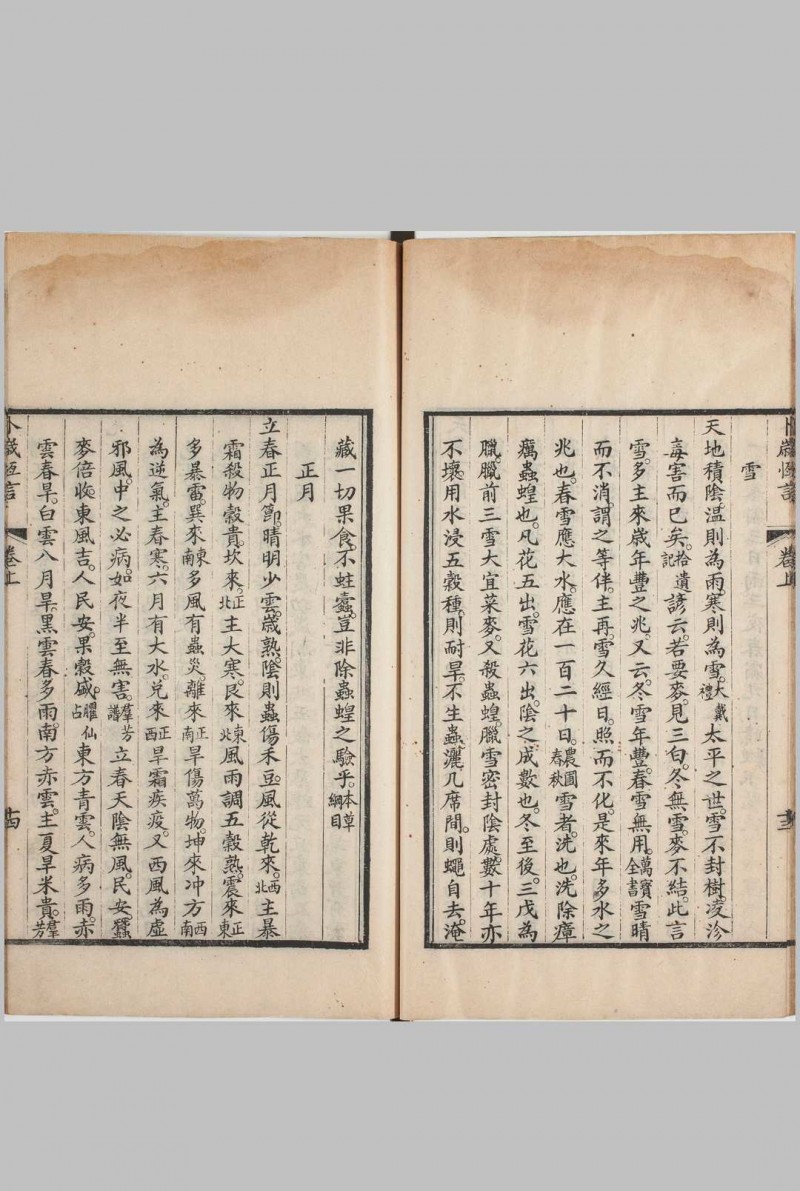 卜歲恆言 卷上 十三
雪
天地積陰溫則為雨。寒則為雪。大戴禮 太平之世。雪不封樹。凌沴
毒害而已矣。拾遺記 諺云。若要麥。見三白。冬無雪。麥不結。此言
雪。多主來歲年豐之兆。又云。冬雪年豐。春雪無用。萬寶全書 雪晴
而不消。謂之等伴。主再。雪久經日。照而不化。是來年多水之
兆也。春雪應大水。應在一百二十日。農圃春秋 雪者。洗也。洗除瘴
癘蟲蝗也。凡花五出。雪花六出。陰之成數也。冬至後。三戊為
臘。臘前三雪大宜菜麥。又殺蟲蝗。臘雪密封陰處。數十年亦
不壞。用水浸五穀種。則耐旱。不生蟲。灑几席間。則蠅自去。淹
藏一切果食。不蛀蠹。豈非除蟲蝗之驗乎。本草綱目
正月
立春正月節。晴明少雲。歲熟。陰則蟲傷禾豆。風從乾來。西北 主暴
霜殺物穀貴。坎來。正北 主大寒。艮來 東北 風雨調五穀熟。震來 正東
多暴雷。巽來 東南 多風有蟲災。離來 正南 旱傷萬物。坤來沖方 西南
為逆氣。主春寒。六月有大水。兌來 正西 旱霜疾疫。又西風為虛
邪風。中之必病。如夜半至無害。羣芳譜 立春天陰無風。民安。蠶
麥倍收。東風吉。人民安。果穀盛。臞仙占 東方青雲。人病多雨。赤
雲春旱。白雲八月旱。黑雲春多雨。南方赤雲。主夏旱米貴。羣芳
卜歲恆言 卷上 十四